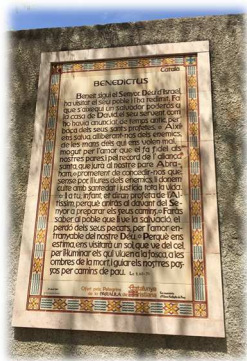 Català
BENEDICTUS
Beneït sigui el Senyor, Déu d'Israel,
ha visitat el seu poble i l'ha redimit, Fa
que s'aixequi un salvador poderós a
la casa de David, el seu servent, com
ho havia anunciat de temps antic per
boca dels seus sants profetes. « Així
ens salva, alliberant-nos dels enemics,
de les mans dels qui ens volen mal,
mogut per l'amor que el fa fidel als
nostres pares, i pel record de l'aliança
santa, que jurà al nostre pare Abra-
ham, » prometent de concedir-nos que,
sense por, lliures dels enemics, li donem
culte amb santedat i justícia tota la vida.
I a tu, infant, et diran profeta de l'Al-
tíssim, perquè aniràs al davant del Se-
nyor a preparar els seus camins, » Faràs
saber al poble que li ve la salvació, el
perdó dels seus pecats, per l'amor en-
tranyable del nostre Déu. » Perquè ens
estima, ens visitarà un sol que ve del cel,
per il·luminar els qui viuen a la fosca, a les
ombres de la mort, i guiar els nostres pas-
sos per camins de pau.